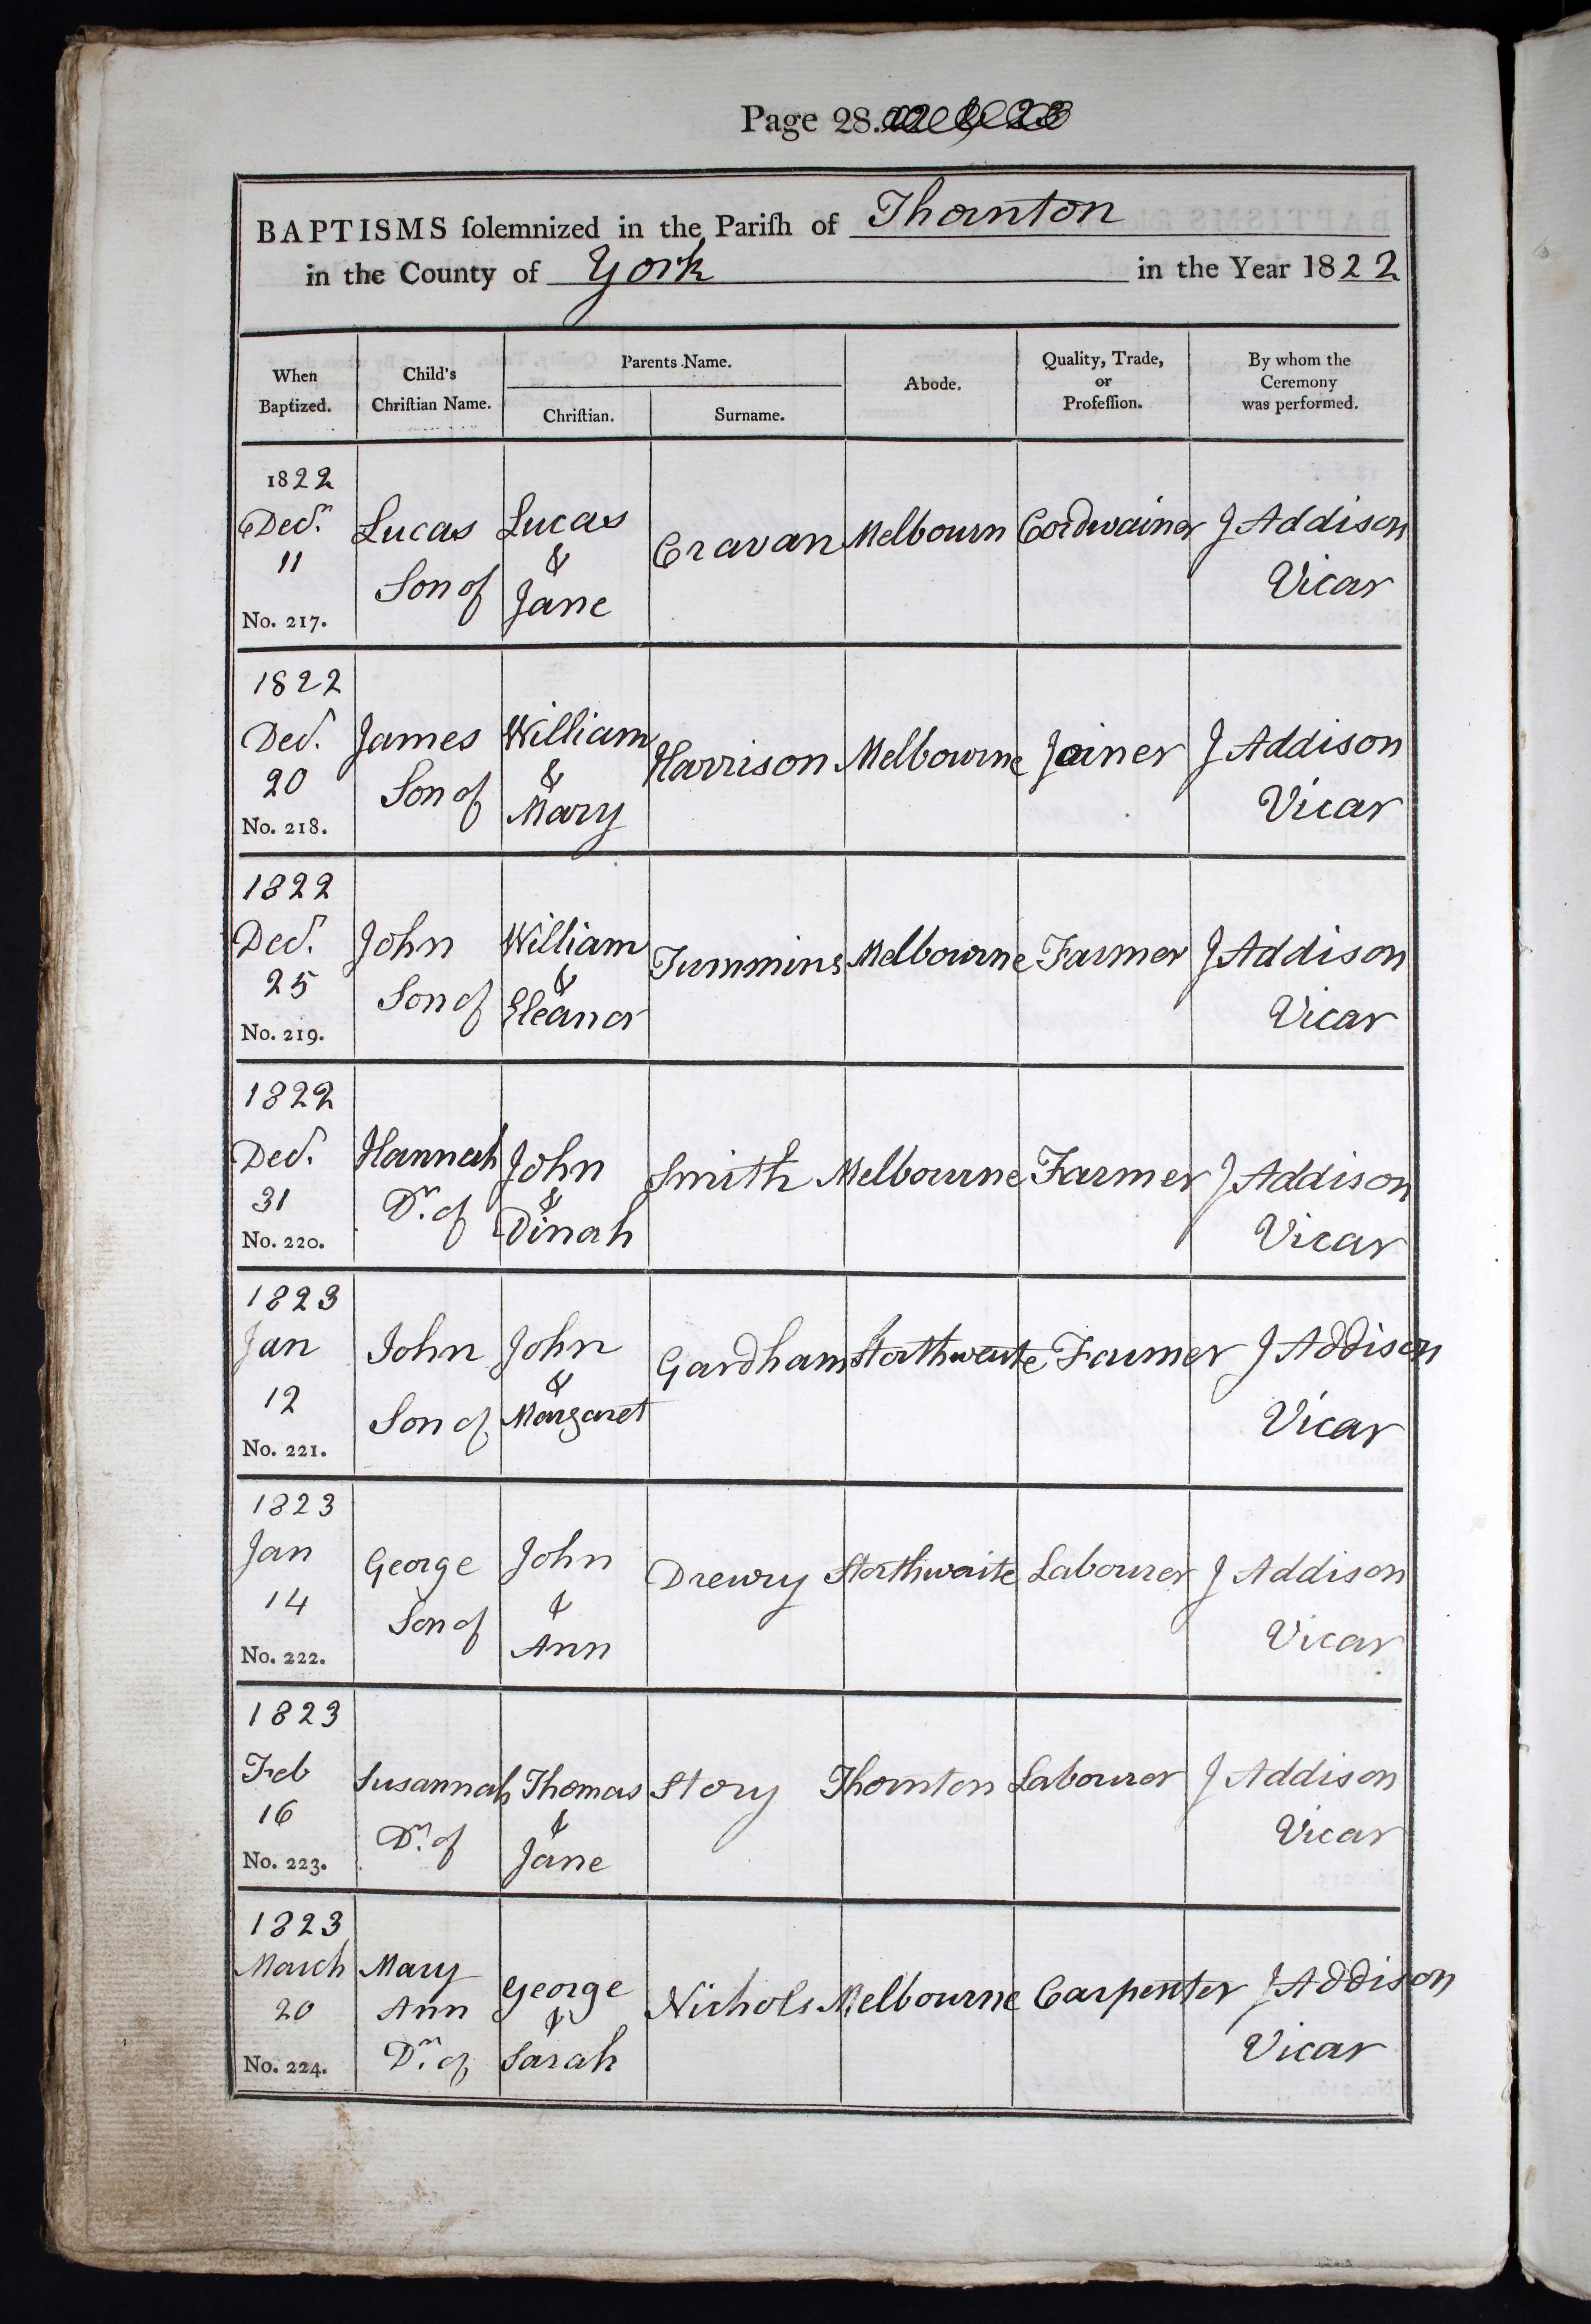 Page 28.
BAPTISMS ſolemnized in the Pariſh of Thornton
in the County of York in the Year 1822
When
Baptized.
Child's
Chriſtian Name.
Parents Name.
Chriſtian.
Surname.
Abode.
Quality, Trade,
or
Profeſſion.
By whom the
Ceremony
was performed.
1822
Decr.
11
No. 217.
Lucas
Son of
Lucas
&
Jane
Cravan
Melbourn
Cordwainer
J Addison
Vicar
1822
Decr.
20
No. 218.
James
Son of
William
&
Mary
Harrison
Melbourne
Joiner
J Addison
Vicar
1822
Decr.
25
No. 219.
John
Son of
William
&
Eleanor
Tummins
Melbourne
Farmer
J Addison
Vicar
1822
Decr.
31
No. 220.
Hannah
Dr. of
John
&
Dinah
Smith
Melbourne
Farmer
J Addison
Vicar
1823
Jan
12
No. 221.
John
Son of
John
&
Margaret
Gardham
Storthwaite
Farmer
J Addison
Vicar
1823
Jan
14
No. 222.
George
Son of
John
&
Ann
Drewry
Storthwaite
Labourer
J Addison
Vicar
1823
Feb
16
No. 223.
Susannah
Dr. of
Thomas
&
Jane
Story
Thornton
Labourer
J Addison
Vicar
1823
March
20
No. 224.
Mary
Ann
Dr. of
George
&
Sarah
Nichols
Melbourne
Carpenter
J Addison
Vicar